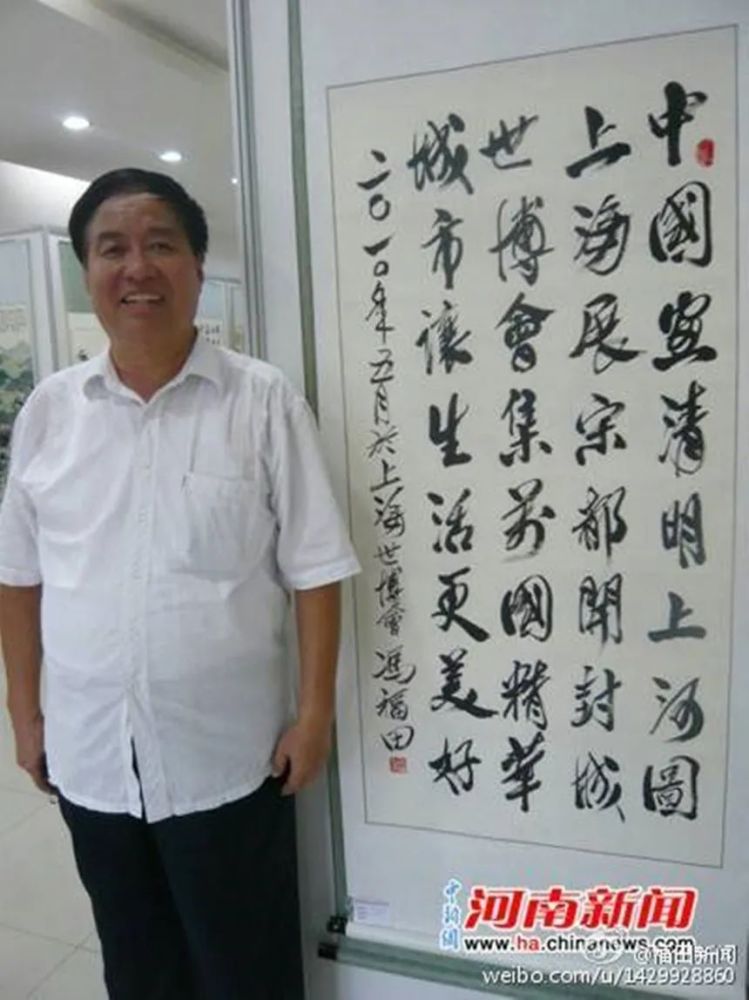 中國宝清明上河圖
上海展宋都開封城
世博會集萬國精華
城市讓生活更美好
二〇一〇年五月於上海世博會 馮福田
中新網 河南新闻
www.ha.chinanews.com
@福田新闻
weibo.com/u/1429928860